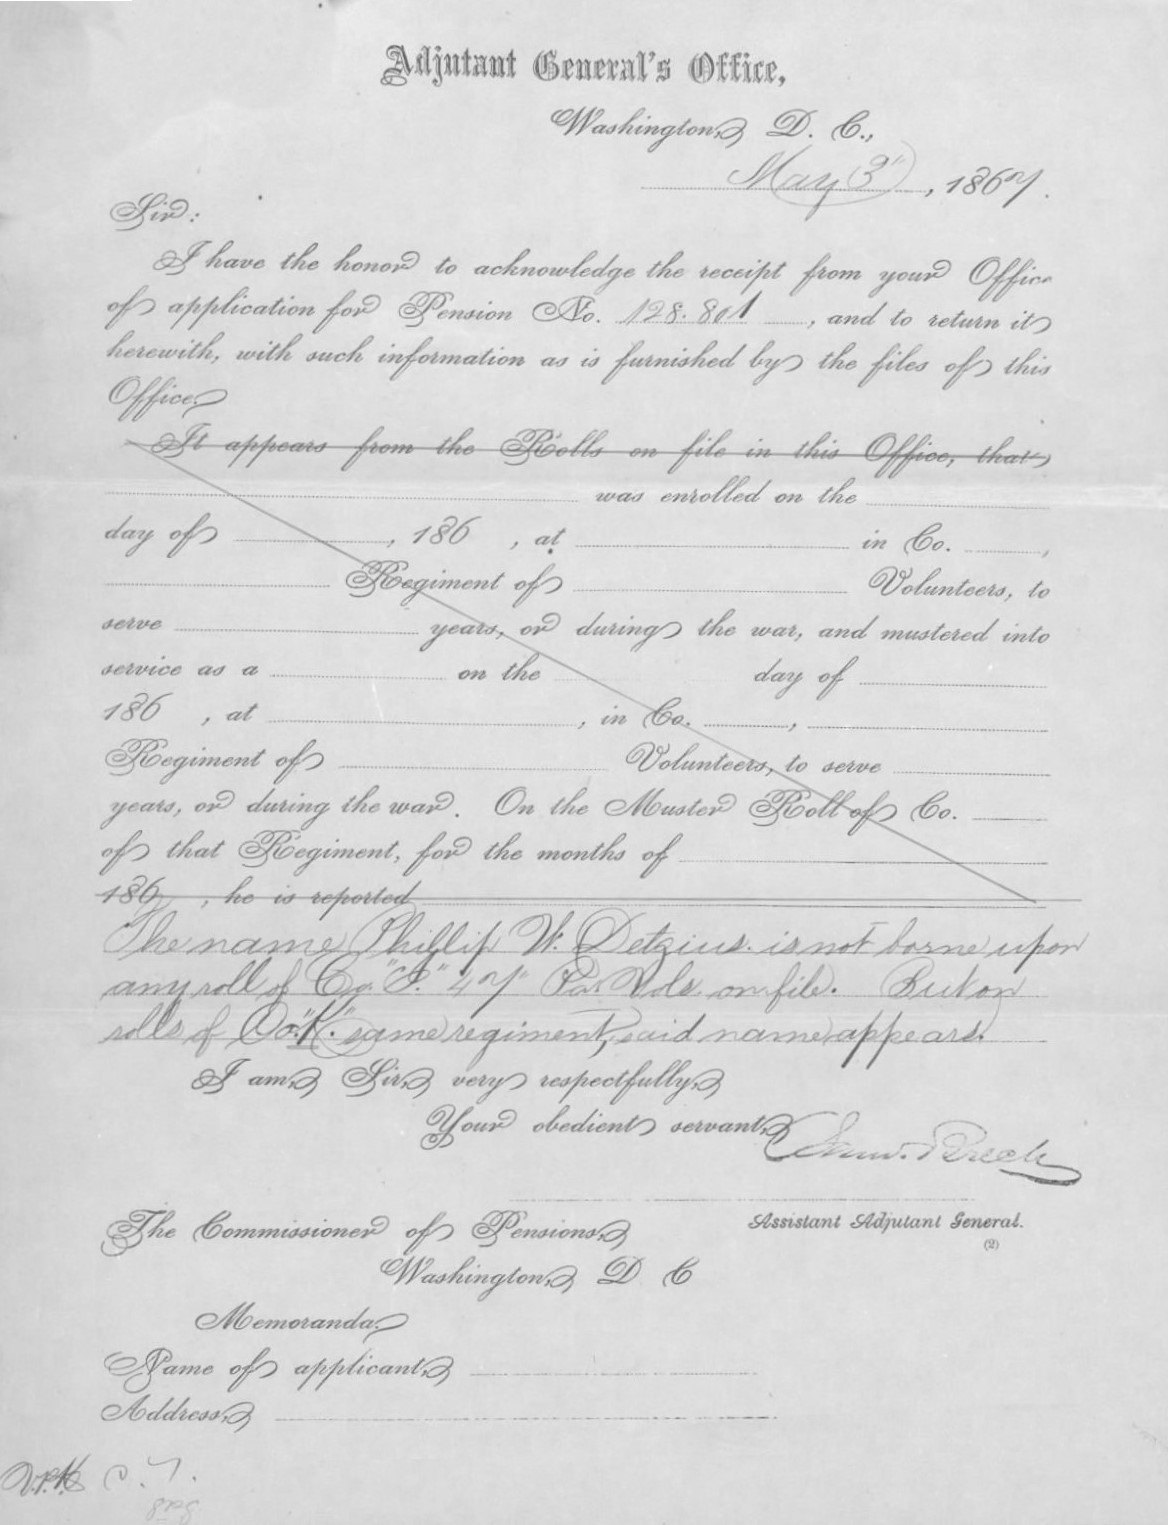 Adjutant General's Office,
Washington, D. C.,
May 3", 1867.
Sir:
I have the honor to acknowledge the receipt from your Office
of application for Pension No. 128.801, and to return it
herewith, with such information as is furnished by the files of this
Office.
It appears from the Rolls on file in this Office, that
was enrolled on the
day of , 186 , at in Co. ,
Regiment of Volunteers, to
serve years, or during the war, and mustered into
service as a on the day of
186 , at , in Co. ,
Regiment of Volunteers, to serve
years, or during the war. On the Muster Roll of Co.
of that Regiment, for the months of
186 , he is reported
The name Phillip W. Detzius. is not borne upon
any roll of Co. "I." 47" Pa. Vols. on file. But on
rolls of Co. "K." same regiment, said name appears.
I am, Sir, very respectfully,
Your obedient servant,
Saml. Breck
Assistant Adjutant General.
(2)
The Commissioner of Pensions,
Washington, D C
Memoranda.
Name of applicant,
Address,